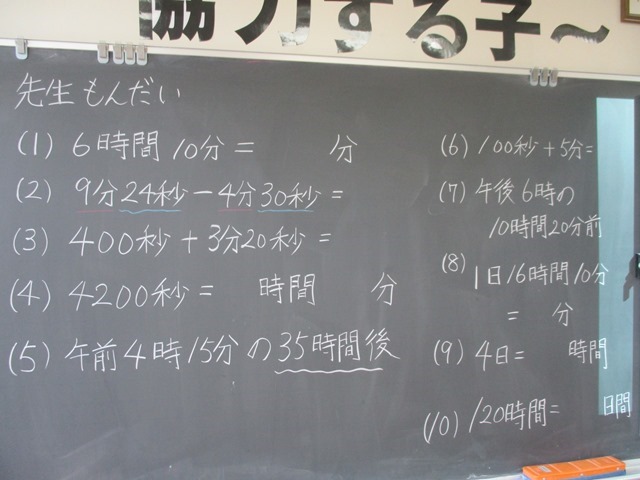 協力する子～
先生もんだい
(1) 6時間10分＝ 分
(2) 9分24秒－4分30秒＝
(3) 400秒＋3分20秒＝
(4) 4200秒＝ 時間 分
(5) 午前4時15分の35時間後
(6) 100秒＋5分＝
(7) 午後6時の
10時間20分前
(8) 1日16時間10分
＝ 分
(9) 4日＝ 時間
(10) 120時間＝ 日間